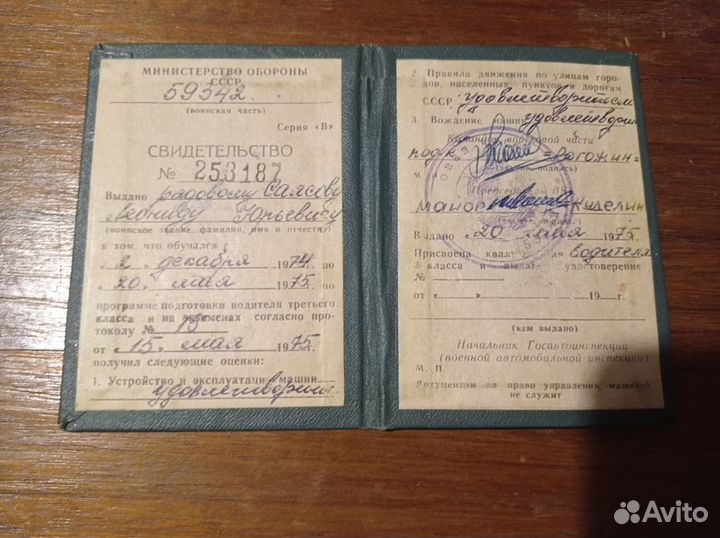 МИНИСТЕРСТВО ОБОРОНЫ
СССР
59342
(воинская часть)
Серия «В»
СВИДЕТЕЛЬСТВО
№ 253187
Выдано рядовому
Леониду Юрьевичу
(воинское звание, фамилия, имя и отчество)
в том, что обучался с
«2» декабря 1974 по
«20» мая 1975 по
программе подготовки водителя третьего
класса и на экзаменах согласно про-
токолу № 13
от «15» мая 1975г.
получил следующие оценки:
1. Устройство и эксплуатация машин
удовлетворит.
2. Правила движения по улицам горо-
дов, населенных пунктов и дорогам
СССР удовлетворительно
3. Вождение машины удовлетворит
Командир войсковой части
подп-к Рогожин
М
Председатель
майор Жиделин
Выдано «20» мая 1975
Присвоена квалификация водителя
3 класса и выдано удостоверение
№
от «» 19 г.
(кем выдано)
Начальник Госавтоинспекции
(военной автомобильной инспекции)
М. П.
Документом на право управления машиной
не служит
Avito